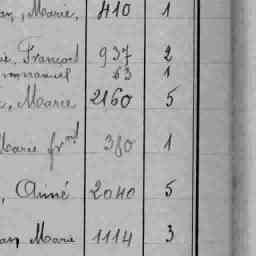 an, Marie, 410 1
ie, François 937 2
Emmanuel 63 1
, Marie 2160 5
Marie fr 380 1
, Aimé 2040 5
an Marie 1114 3